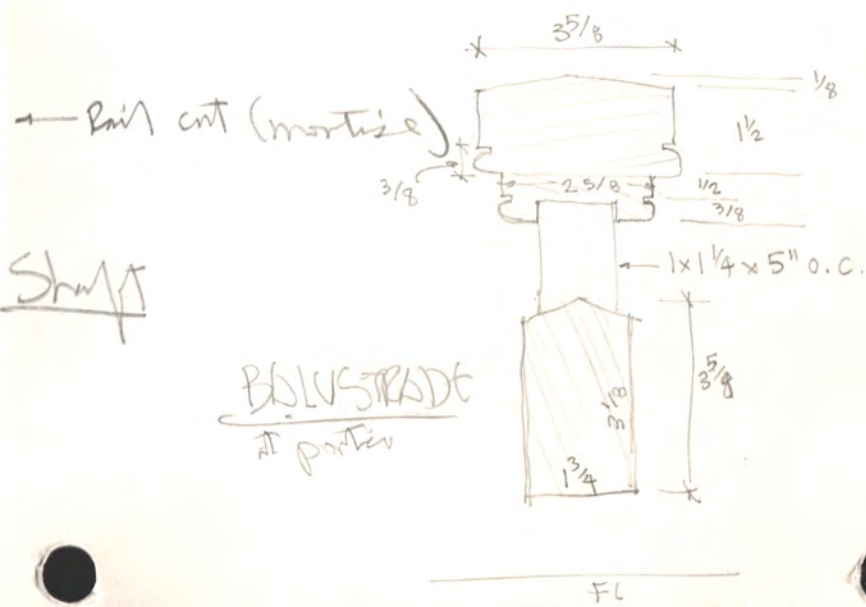 3 5/8
1/8
← Rail cut (mortise)
1 1/2
3/8
2 5/8
1/2
3/8
← 1x1 1/4 x 5" O.C.
Shaft
BALUSTRADE
at portico
3 5/8
3 1/8
1 3/4
FL